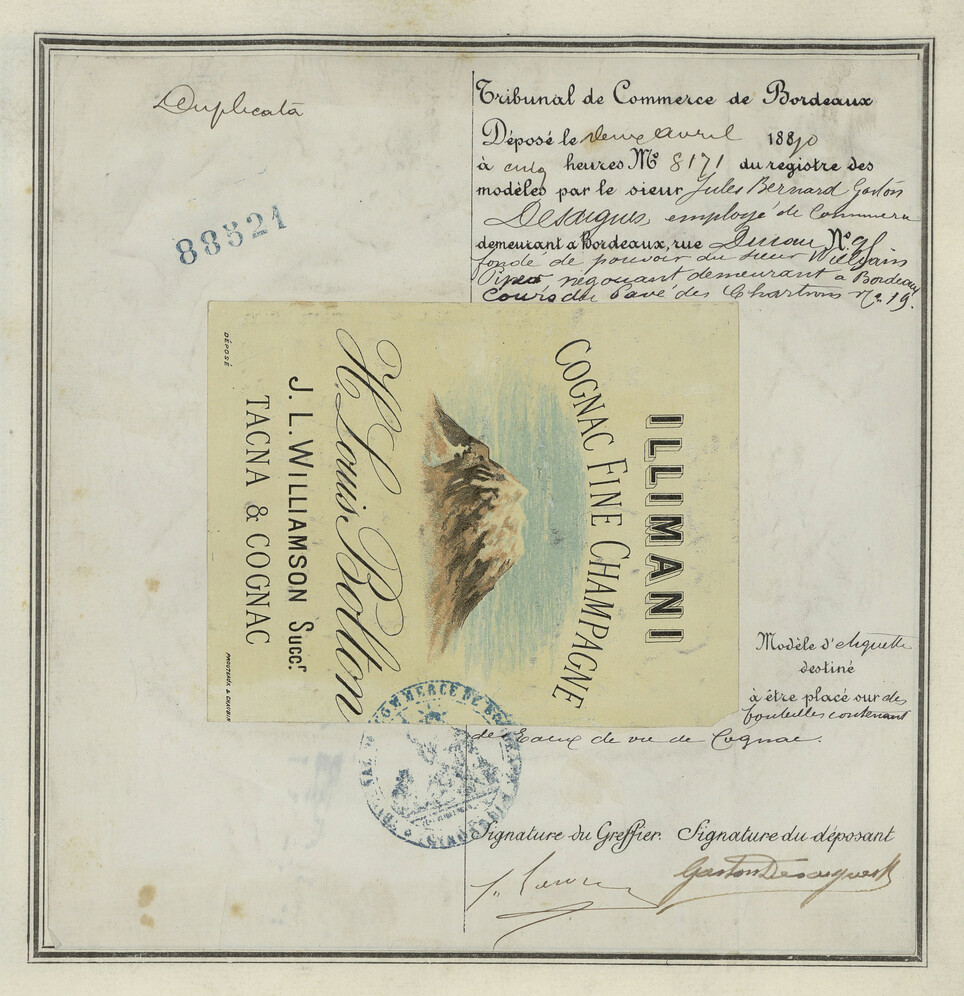 Duplicata
88521
Tribunal de Commerce de Bordeaux
Déposé le deux avril 1880
à cinq heures No 8171 du registre des
modèles par le sieur Jules Bernard Gaston
employé de Commerce
demeurant à Bordeaux, rue No
fondé de pouvoir du sieur William
négociant demeurant à Bordeaux
Cours du Pavé des Chartrons No. 19.
ILLIMANI
COGNAC FINE CHAMPAGNE
H. Louis Bolton
J. L. WILLIAMSON Succr.
TACNA & COGNAC
DÉPOSÉ
Modèle d'etiquette
destiné
à être placé sur des
bouteilles contenant
des Eaux de vie de Cognac.
COMMERCE DE
Signature du Greffier. Signature du déposant